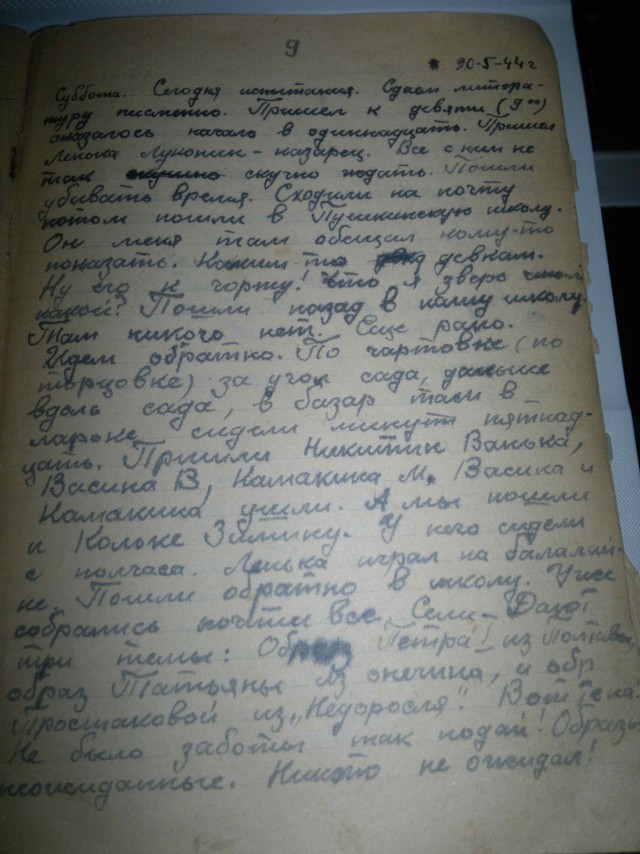 9
20-5-44 г
Суббота. Сегодня испытания. Сдаём литера-
туру письменно. Пришел к девяти (9 00)
оказалось начало в одиннадцать. Пришел
Лёнька Луконин - казарец. Все с ним не
так скучно ждать. Пошли
убивать время. Сходили на почту
потом пошли в Пушкинскую школу.
Он меня там обещал кому-то
показать. Каким-то девкам.
Ну его к чорту! Что я зверь
какой? Пошли назад в нашу школу.
Там никого нет. Еще рано.
Идем обратно. По чартовке (по
торцовке) за угол сада, дальше
вдоль сада, в базар там в
ларьке сидели минут пятнад-
цать. Пришли Никитин Ванька,
Васина В, Камакина М. Васина и
Камакина ушли. А мы пошли
к Кольке Зимину. У него сидели
с полчаса. Ленька играл на балалай-
ке. Пошли обратно в школу. Уже
собрались почти все. Сели- Дают
три темы: Образ Петра I из Полтавы,
образ Татьяны из онегина, и обр
Простаковой из „Недоросля". Вот те на!
Не было заботы так подай! Образы
неожиданные. Никто не ожидал!